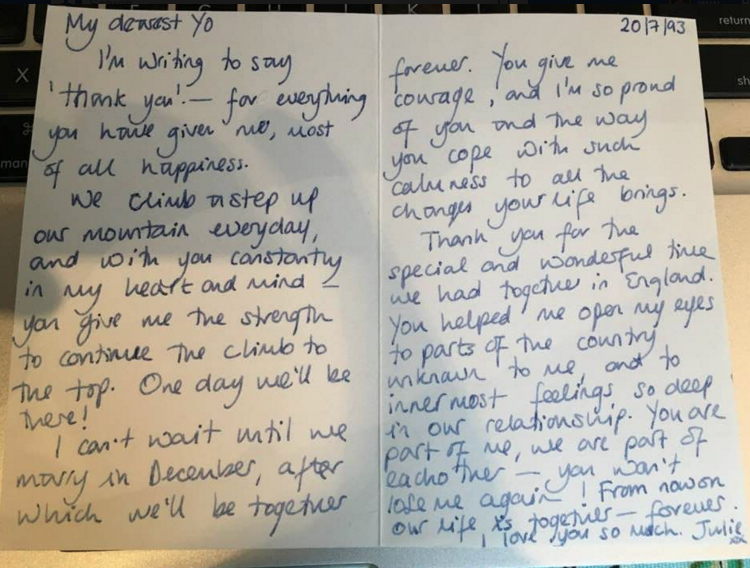 My dearest Yo
I'm writing to say
'thank you'. — for everything
you have given me, most
of all happiness.
We climb a step up
our mountain everyday,
and with you constantly
in my heart and mind —
you give me the strength
to continue the climb to
the top. One day we'll be
there!
I can't wait until we
marry in December, after
which we'll be together
20/7/93
forever. You give me
courage, and I'm so proud
of you and the way
you cope with such
calmness to all the
changes your life brings.
Thank you for the
special and wonderful time
we had together in England.
You helped me open my eyes
to parts of the country
unknown to me, and to
innermost feelings so deep
in our relationship. You are
part of me, we are part of
eachother — you won't
lose me again! From now on
our life is together — forever.
I love you so much. Julie
xx
return
X